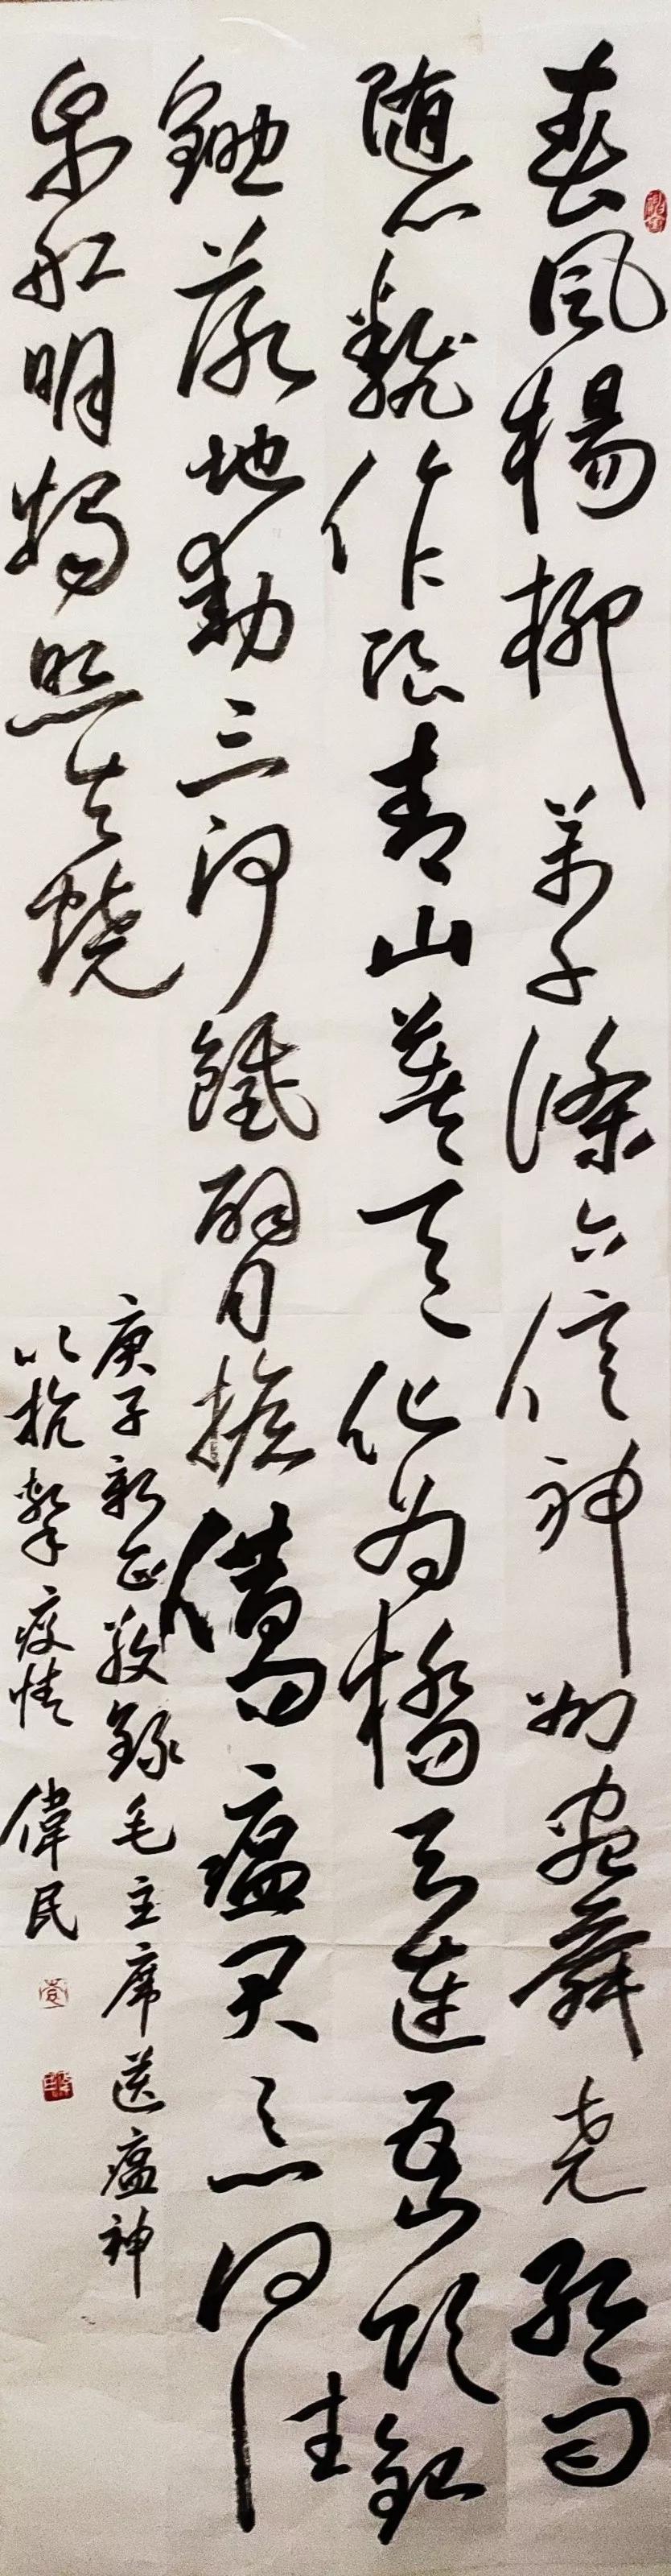 春風楊柳萬千條六億神州盡舜尧紅雨
随心翻作浪青山著意化为橋天連五嶺銀
鋤落地動三河鐵臂搖借問瘟君欲何往
紙船明燭照天燒
庚子新正敬錄毛主席送瘟神
以抗擊疫情 偉民